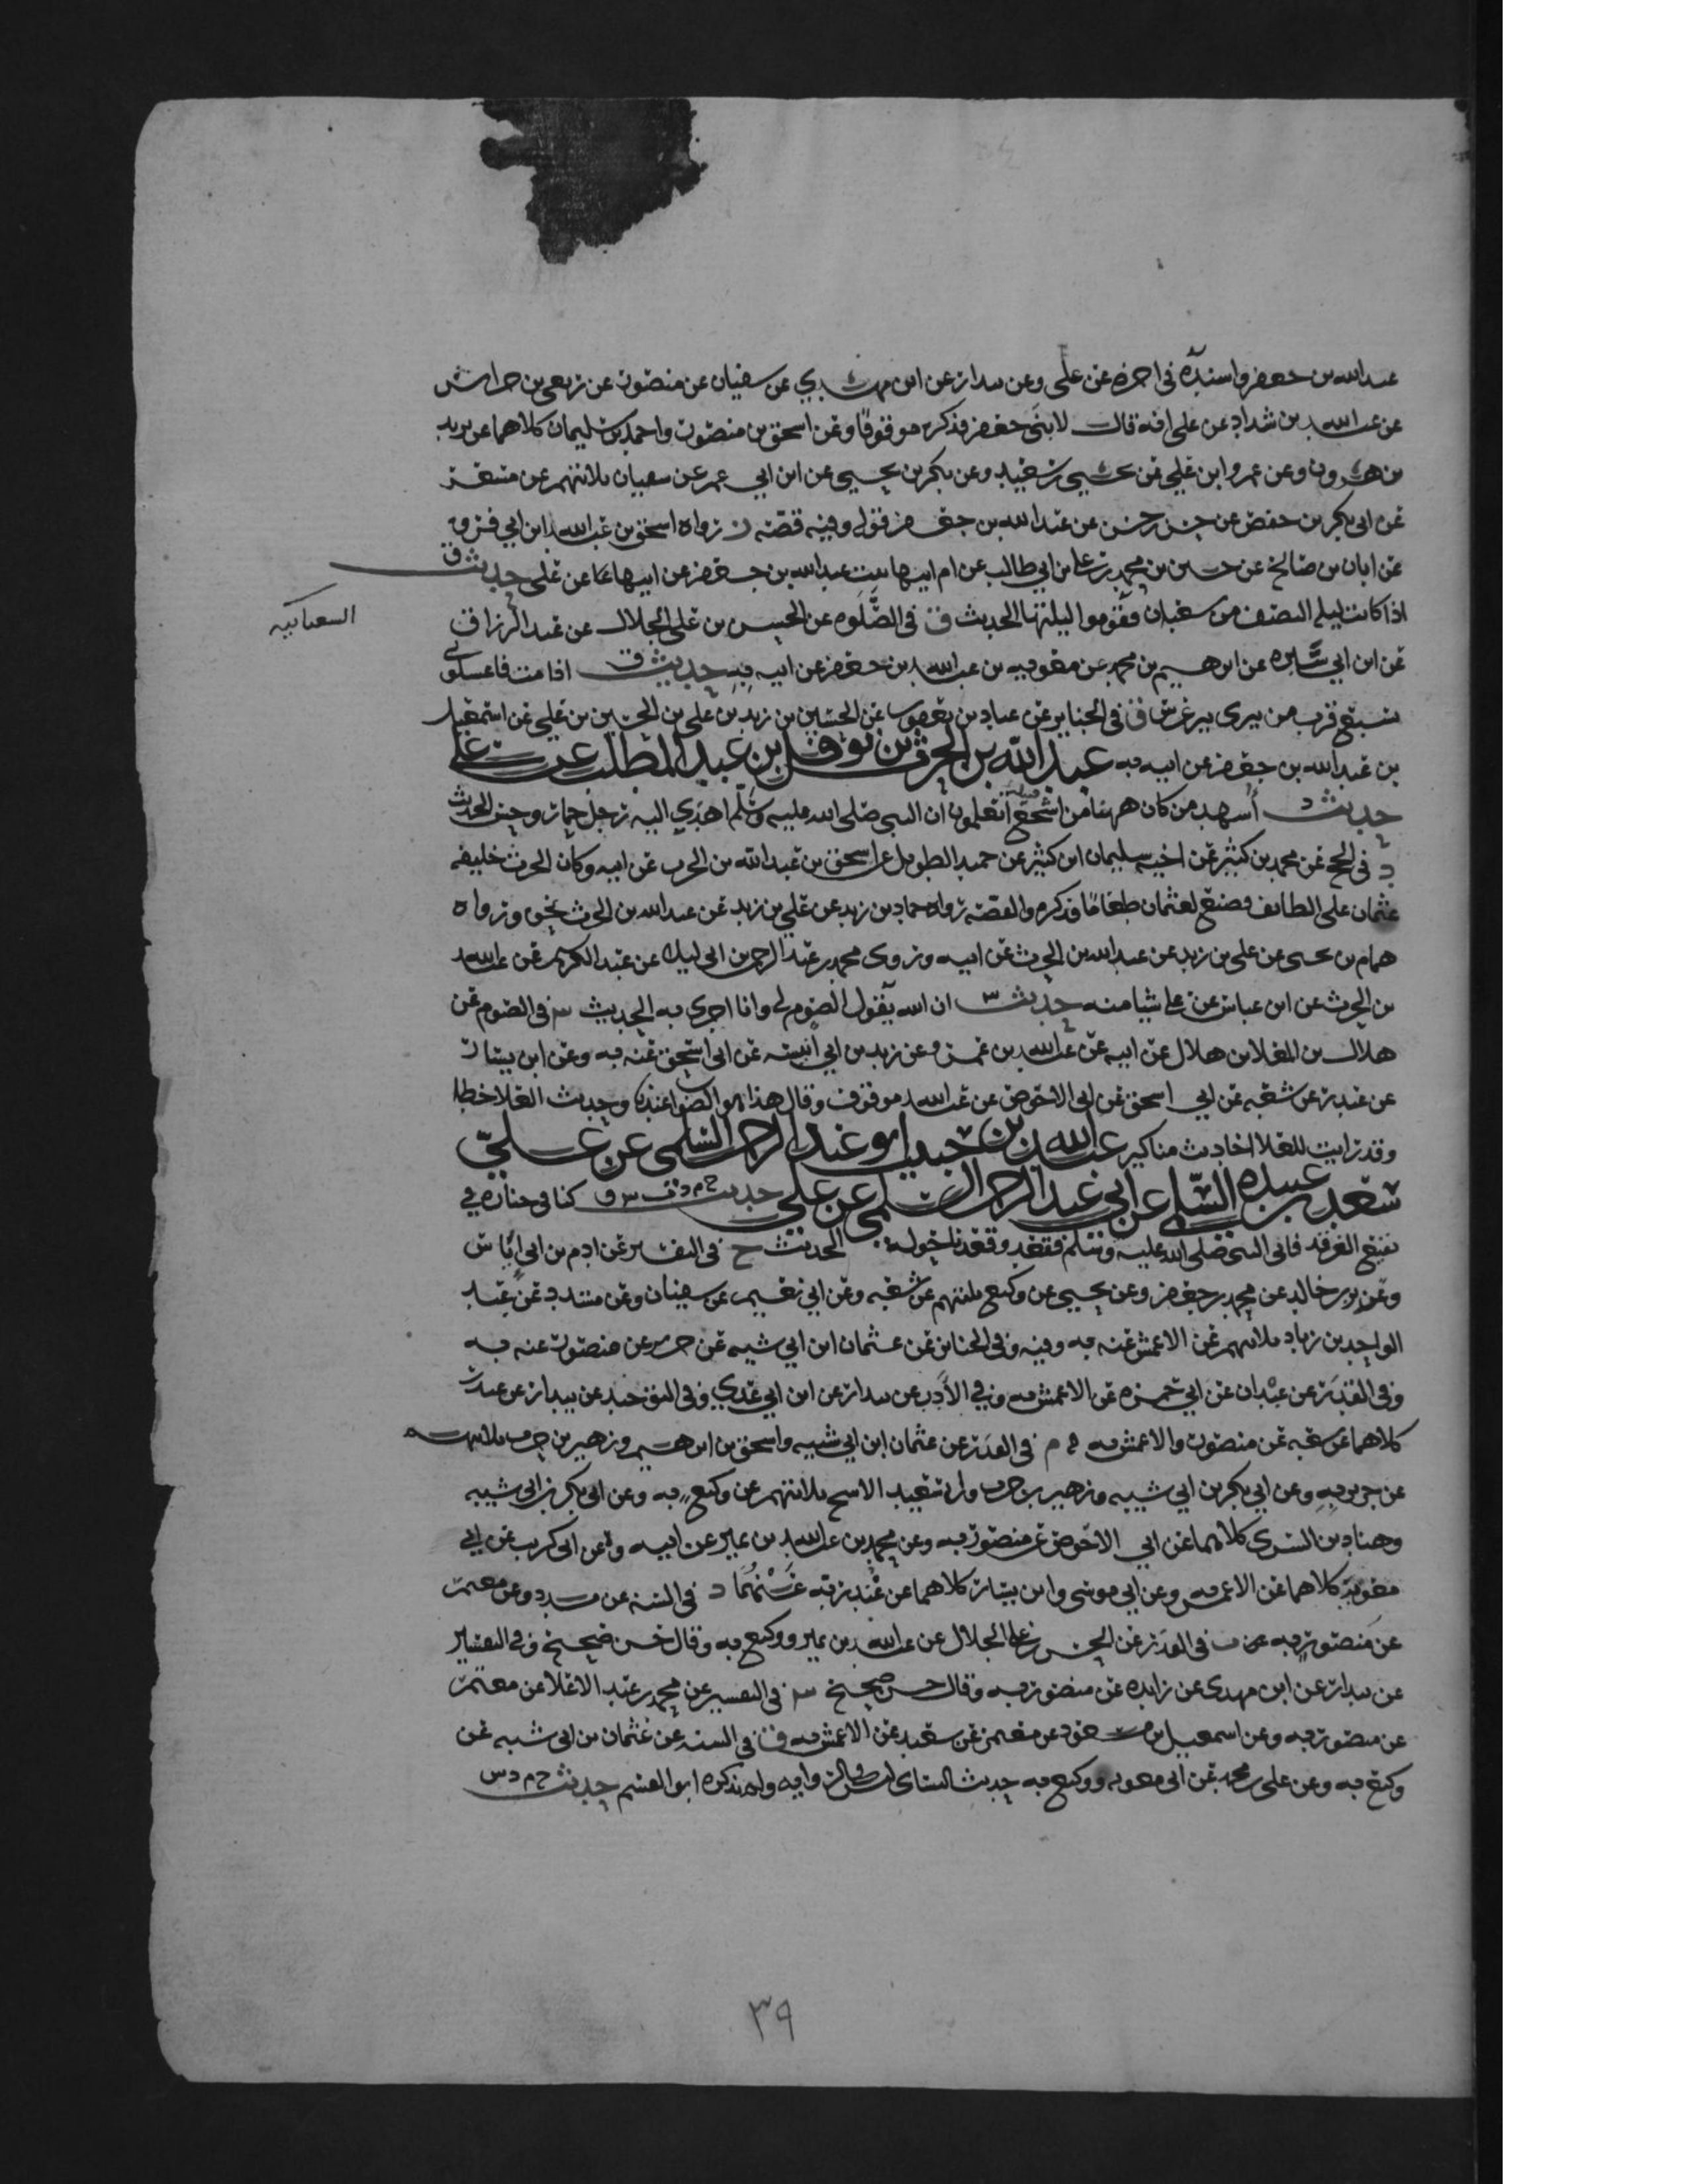 عبد الله بن جعفر واسنده في اخره عن علي وعن بندار عن ابن مهدي عن سفيان عن منصور عن ربعي بن حراش
عن عبد الله بن شداد عن علي انه قال لابني جعفر فذكره موقوفا وعن اسحق بن منصور واحمد بن سليمان كلاهما عن يزيد
بن هرون وعن عمرو ابن علي عن يحيى بن سعيد وعن بكر بن يحيى عن ابن ابي عمر عن سفيان ثلاثتهم عن مسعر
عن ابي بكر بن حفص عن حسن بن حسن عن عبد الله بن جعفر قوله وفيه قصة ز رواه اسحق بن عبد الله ابن ابي فروة
عن ابان بن صالح عن حسين بن محمد بن علي بن ابي طالب عن ام ابيها بنت عبد الله بن جعفر عن ابيها عن علي حديث ق
السعبانيه
اذا كانت ليلة النصف من شعبان فقوموا ليلتها الحديث ق في الصلوه عن الحسن بن علي الخلال عن عبد الرزاق
عن ابن ابي سبره عن ابرهيم بن محمد عن معويه بن عبد الله بن جعفر عن ابيه به حديث ق اذا مت فاغسلوني
بسبع قرب من بيري بير غرس ق في الجنايز عن عباد بن يعقوب عن الحسين بن زيد بن علي بن الحسين بن علي عن اسمعيل
بن عبد الله بن جعفر عن ابيه به عبد الله بن الحرث بن نوفل ابن عبد المطلب عن علي
حديث د انشد من كان ههنا من اشجع اتعلمون ان النبي صلى الله عليه وسلم اهدي اليه رجل حمار وحش الحديث
د في الحج عن محمد بن كثير عن اخيه سليمان ابن كثير عن حميد الطويل عن اسحق بن عبد الله بن الحرث عن ابيه وكان الحرث خليفه
عثمان على الطائف فصنع لعثمان طعاما فذكره والقصة رواه حماد بن زيد عن علي بن زيد عن عبد الله بن الحرث نحوه ورواه
همام بن يحيى عن علي بن زيد عن عبد الله بن الحرث عن ابيه وروى محمد بن عبد الرحمن بن ابي ليلى عن عبد الكريم عن عبد الله
بن الحرث عن ابن عباس عن علي شيا منه حديث س ان الله يقول الصوم لي وانا اجزي به الحديث س في الصوم عن
هلال بن العلا بن هلال عن ابيه عن عبيد الله بن عمرو عن زيد بن ابي انيسه عن ابي اسحق عنه به وعن ابن بشار
عن غندر عن شعبه عن ابي اسحق عن ابي الاحوص عن عبد الله موقوف وقال هذا هو الصواب عندنا وحديث العلا خطا
وقد رايت للعلا احاديث مناكير عبد الله بن حبيب ابو عبد الرحمن السلمي عن علي
سعد بن عبيده السلمي عن ابي عبد الرحمن السلمي عن علي حديث خ م د ت س ق كنا في جنازه في
بقيع الغرقد فاتى النبي صلى الله عليه وسلم فقعد وقعدنا حوله الحديث خ في التفسير عن ادم بن ابي اياس
وعن بشر بن خالد عن محمد بن جعفر وعن يحيى عن وكيع ثلثتهم عن شعبه وعن ابي نعيم عن سفيان وعن مسدد عن عبد
الواحد بن زياد ثلاثتهم عن الاعمش عنه به وفيه وفي الجنايز عن عثمان ابن ابي شيبه عن جرير عن منصور عنه به
وفي القدر عن عبدان عن ابي حمزه عن الاعمش به وفي الأدب عن بندار عن ابن ابي عدي وفي التوحيد عن بندار عن غندر
كلاهما عن شعبه عن منصور والاعمش به م في القدر عن عثمان ابن ابي شيبه واسحق بن ابرهيم وزهير بن حرب ثلاثتهم
عن جرير به وعن ابي بكر بن ابي شيبه وزهير بن حرب وابي سعيد الاشج ثلاثتهم عن وكيع به وعن ابي بكر بن ابي شيبه
وهناد بن السري كلاهما عن ابي الاحوص عن منصور به وعن محمد بن عبد الله بن نمير عن ابيه وعن ابي كريب عن ابي
معويه كلاهما عن الاعمش به وعن ابي موسى وابن بشار كلاهما عن غندر به عنهما د في السنه عن مسدد وعن معتمر
عن منصور به ت في القدر عن الحسن بن علي الخلال عن عبد الله بن نمير ووكيع به وقال حسن صحيح وفي التفسير
عن بندار عن ابن مهدي عن زايده عن منصور به وقال حسن صحيح س في التفسير عن محمد بن عبد الاعلا عن معتمر
عن منصور به وعن اسمعيل بن مسعود عن معتمر عن شعبه عن الاعمش به ق في السنه عن عثمان بن ابي شيبه عن
وكيع به وعن علي بن محمد عن ابي معويه ووكيع به حديث النساي ليس في الروايه ولم يذكره ابو القسم حديث خ م د س
٣٩